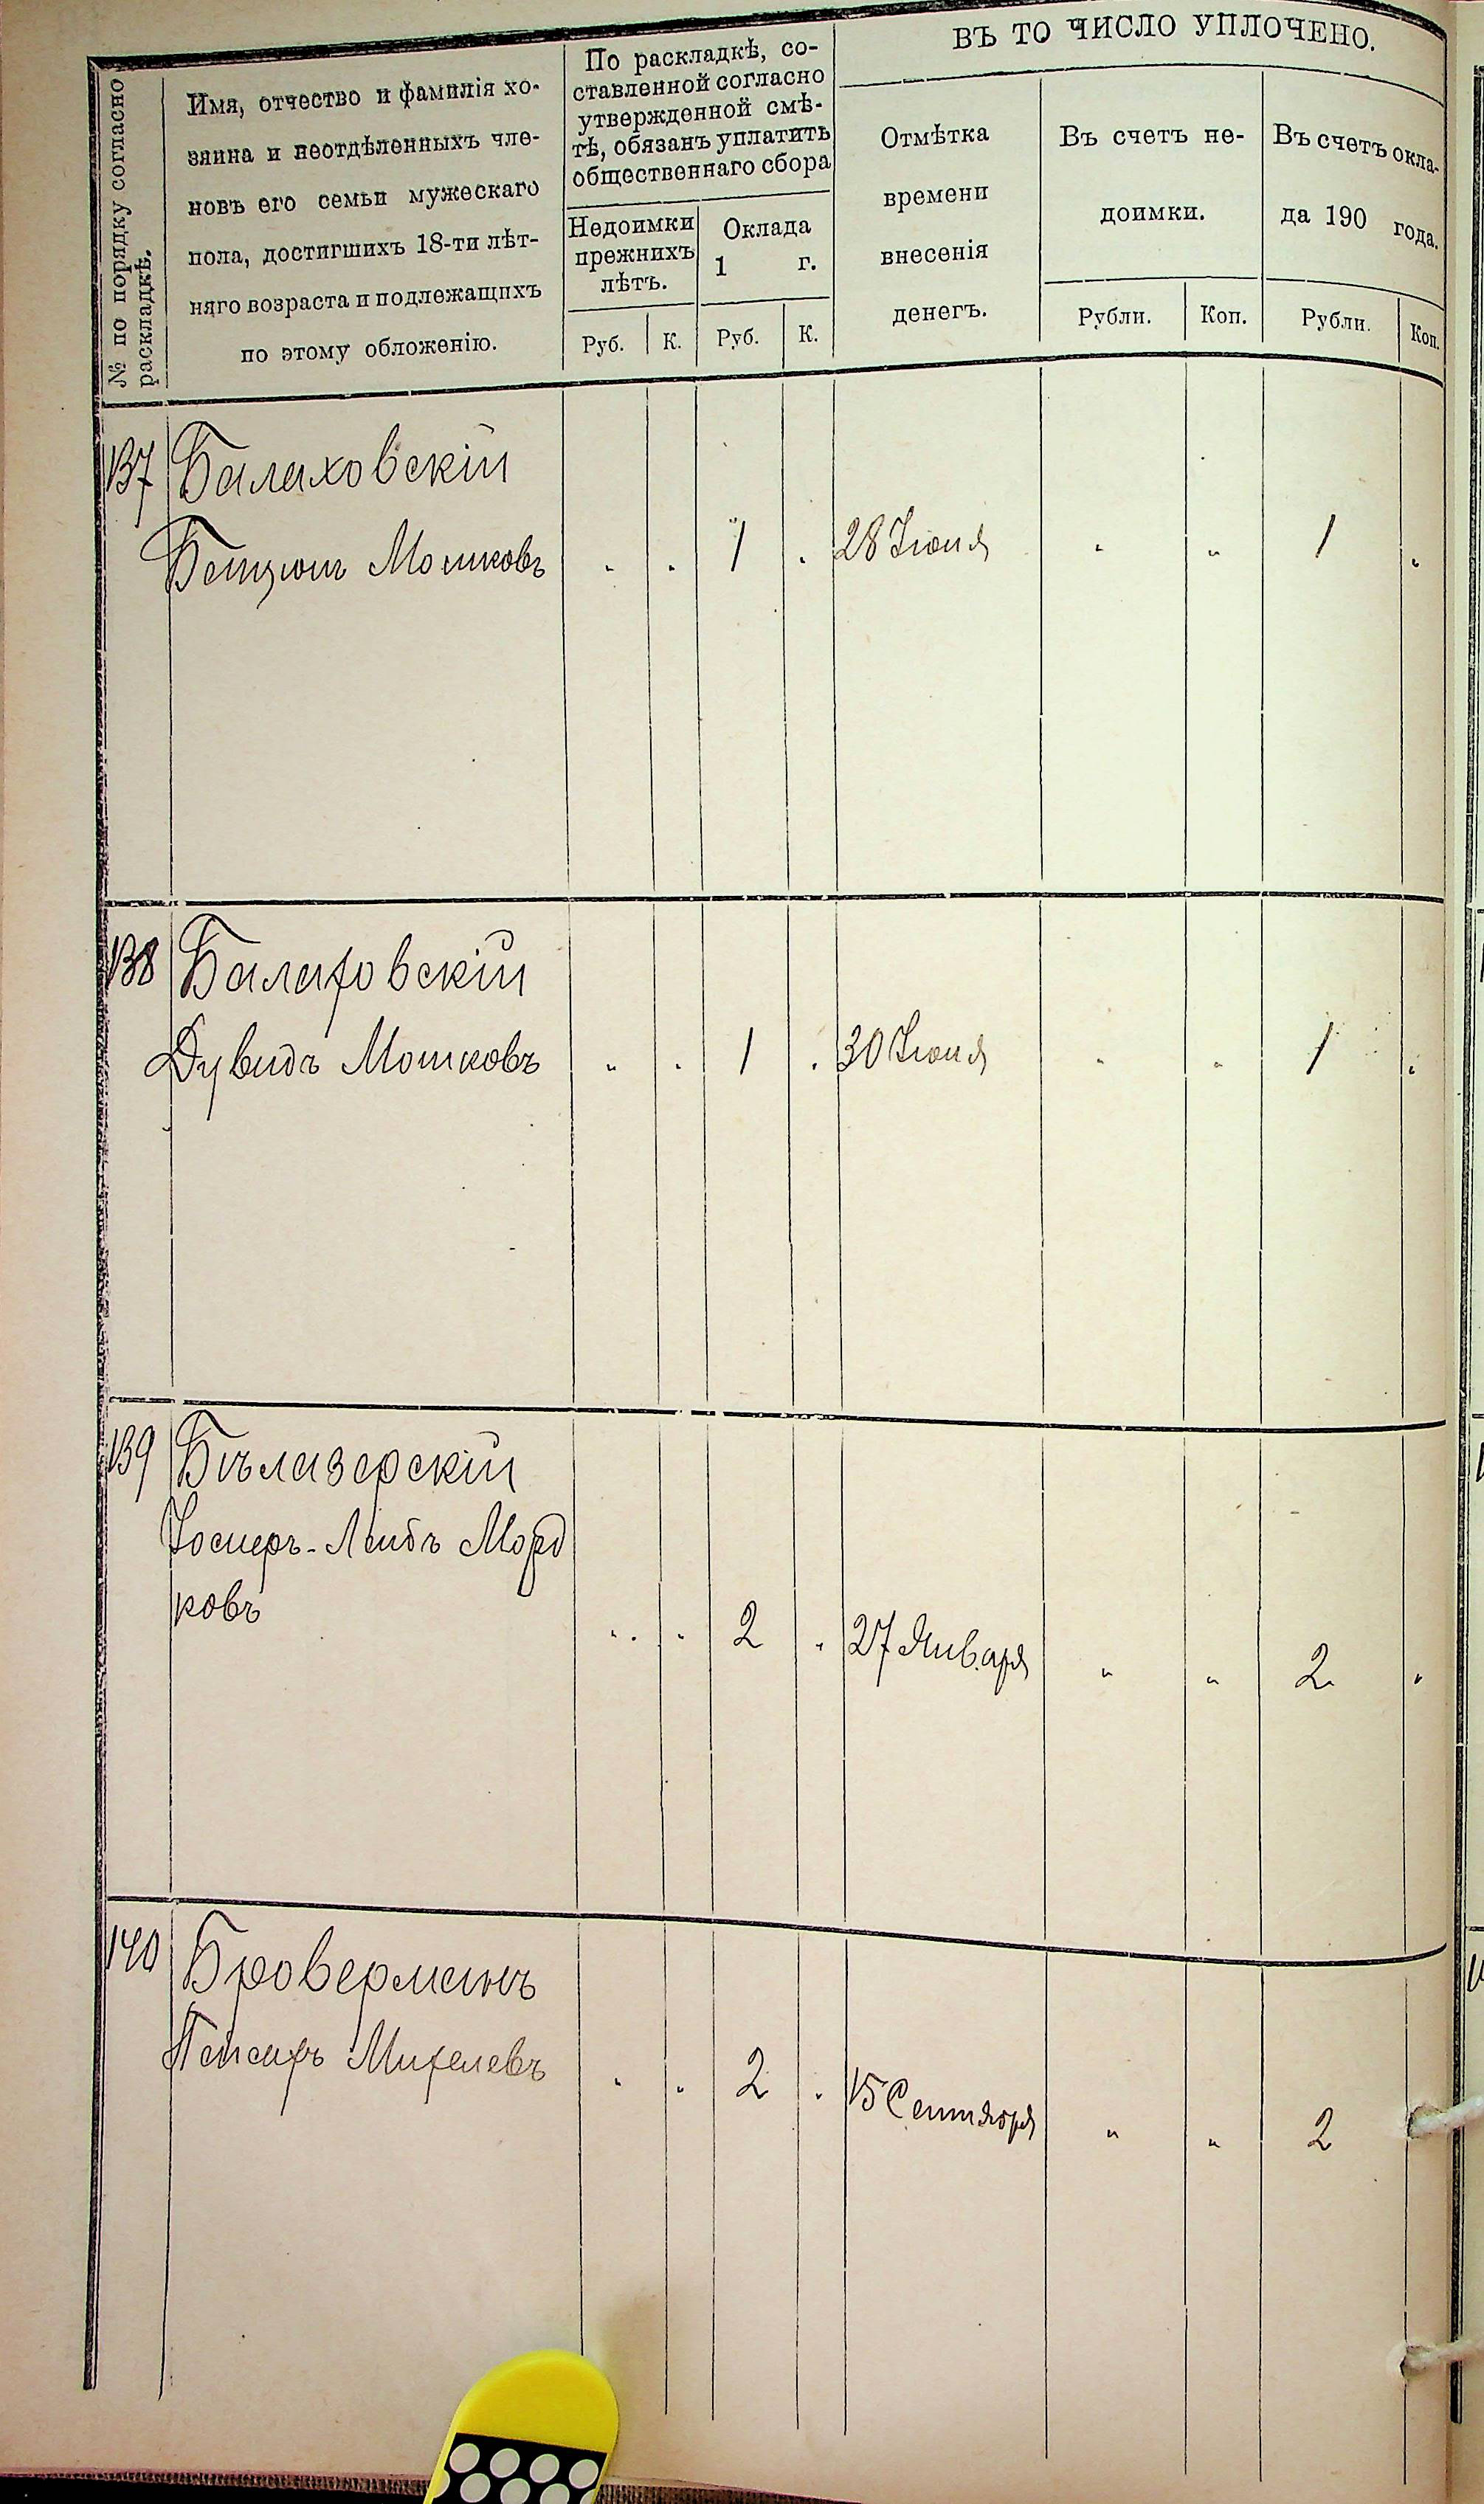 № по порядку согласно
раскладкѣ.
Имя, отчество и фамилія хо-
зяина и неотдѣленныхъ чле-
новъ его семьи мужескаго
пола, достигшихъ 18-ти лѣт-
няго возраста и подлежащихъ
по этому обложенію.
По раскладкѣ, со-
ставленной согласно
утвержденной смѣ-
тѣ, обязанъ уплатить
общественнаго сбора
Недоимки
прежнихъ
лѣтъ.
Оклада
1 г.
Руб. К. Руб. К.
ВЪ ТО ЧИСЛО УПЛОЧЕНО.
Отмѣтка
времени
внесенія
денегъ.
Въ счетъ не-
доимки.
Въ счетъ окла-
да 190 года.
Рубли. Коп. Рубли. Коп.
137 Балаховскій
Бенціонъ Мошковъ " " 1 " 28 Іюня " " 1 "
138 Балаховскій
Дувидъ Мошковъ " " 1 " 30 Іюня " " 1 "
139 Бѣлазерскій
Іосифъ-Лейбъ Морд
ковъ " " 2 " 27 Января " " 2 "
140 Броверманъ
Пейсахъ Михелевъ " " 2 " 15 Сентября " " 2